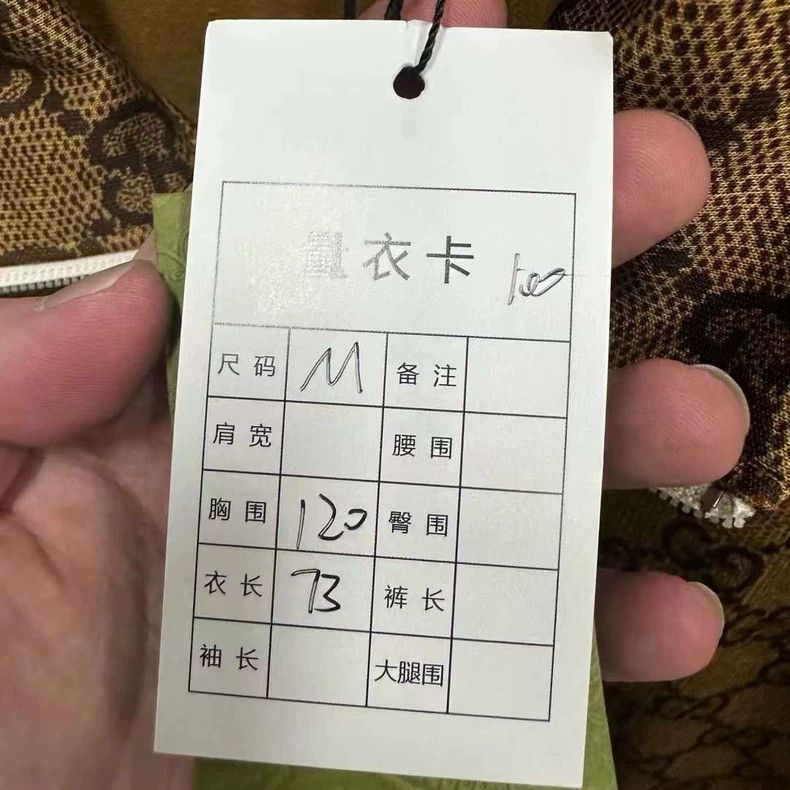 量衣卡 100
尺码 M 备注
肩宽 腰围
胸围 120 臀围
衣长 73 裤长
袖长 大腿围